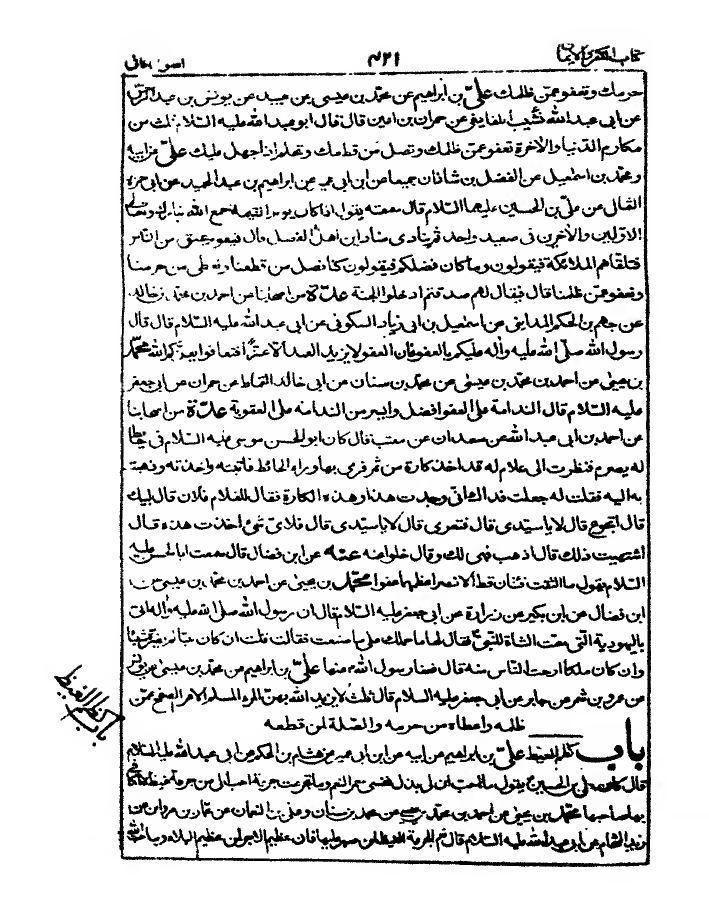 كتاب الكفر والايمان ٤٢١ اصول كافى
حرمك وتعفو عمن ظلمك علىّ بن ابراهيم عن محمّد بن عيسى بن عبيد عن يونس بن عبد الرحمن
عن ابى عبد الله نشيب اللفايفى عن حمران بن اعين قال قال ابو عبد الله عليه السّلام ثلث من
مكارم الدّنيا والآخرة تعفو عمّن ظلمك وتصل من قطعك وتحلم اذا جهل عليك علىّ عن ابيه
ومحمّد بن اسمٰعيل عن الفضل بن شاذان جميعا عن ابن ابى عمير عن ابراهيم بن عبد الحميد عن ابى حمزة
الثمالى عن علىّ بن الحسين عليهما السّلام قال سمعته يقول اذا كان يوم القيٰمة جمع الله تبارك وتعالى
الاوّلين والآخرين فى صعيد واحد ثم ينادى مناد اين اهل الفضل قال فيقوم عنق من النّاس
فتلقاهم الملائكة فيقولون وما كان فضلكم فيقولون كنّا نصل من قطعنا ونعطى من حرمنا
ونعفو عمّن ظلمنا قال فيقال لهم صدقتم ادخلوا الجنّة عدّة من اصحابنا عن احمد بن محمّد بن خالد
عن جهم بن الحكم المداينى عن اسمٰعيل بن ابى زياد السكونى عن ابى عبد الله عليه السّلام قال قال
رسول الله صلّى الله عليه وآله عليكم بالعفو فان العفو لا يزيد العبد الّا عزّا فتعافوا يعزّكم الله محمّد
بن يحيى عن احمد بن محمّد بن عيسى عن محمّد بن سنان عن ابى خالد القماط عن حمران عن ابى جعفر
عليه السّلام قال الندامة على العفو افضل وايسر من الندامة على العقوبة عدّة من اصحابنا
عن احمد بن ابى عبد الله عن سعدان عن معتب قال كان ابو الحسن موسى عليه السّلام فى حائط
له يصرم فنظرت الى غلام له قد اخذ كارة من تمر فرمى بها وراء الحائط فاتيته واخذته وذهبت
به اليه فقلت له جعلت فداك انّى وجدت هذا وهذه الكارة فقال للغلام فلان قال لبيك
قال اتجوع قال لا يا سيّدى قال فتعرى قال لا يا سيّدى قال فلاىّ شئ اخذت هذه قال
اشتهيت ذلك قال اذهب فهى لك وقال خلّوا عنه عنه عن ابن فضال قال سمعت ابا الحسن عليه
السّلام يقول ما التقت فئتان قط الّا نصر اعظمهما عفوا محمّد بن يحيى عن احمد بن محمّد بن عيسى عن
ابن فضال عن ابن بكير عن زرارة عن ابى جعفر عليه السّلام قال ان رسول الله صلّى الله عليه وآله اتى
باليهودية الّتى سمّت الشاة للنّبىّ فقال لها ما حملك على ما صنعت فقالت قلت ان كان نبيّا لم يضرّه
وان كان ملكا ارحت النّاس منه قال فعفا رسول الله عنها علىّ بن ابراهيم عن محمّد بن عيسى عن يونس
عن عمرو بن شمر عن جابر عن ابى جعفر عليه السّلام قال ثلٰث لا يزيد الله بهنّ المرء المسلم الّا عزّا الصفح عمّن
ظلمه واعطاء من حرمه والصّلة لمن قطعه
باب كظم الغيظ
باب كظم الغيظ علىّ بن ابراهيم عن ابيه عن ابن ابى عمير عن هشام بن الحكم عن ابى عبد الله عليه السّلام
قال كان علىّ بن الحسين يقول ما احبّ ان لى بذلّ نفسى حمر النعم وما تجرّعت جرعة احبّ الىّ من جرعة غيظ لا اكافى
بها صاحبها محمّد بن يحيى عن احمد بن محمّد بن عيسى عن محمد بن سنان وعلى بن النعمان عن عمّار بن مروان عن
زيد الشحّام عن ابى عبد الله عليه السّلام قال نعم الجرعة الغيظ لمن صبر عليها فان عظيم الاجر لمن عظيم البلاء وما احبّ الله